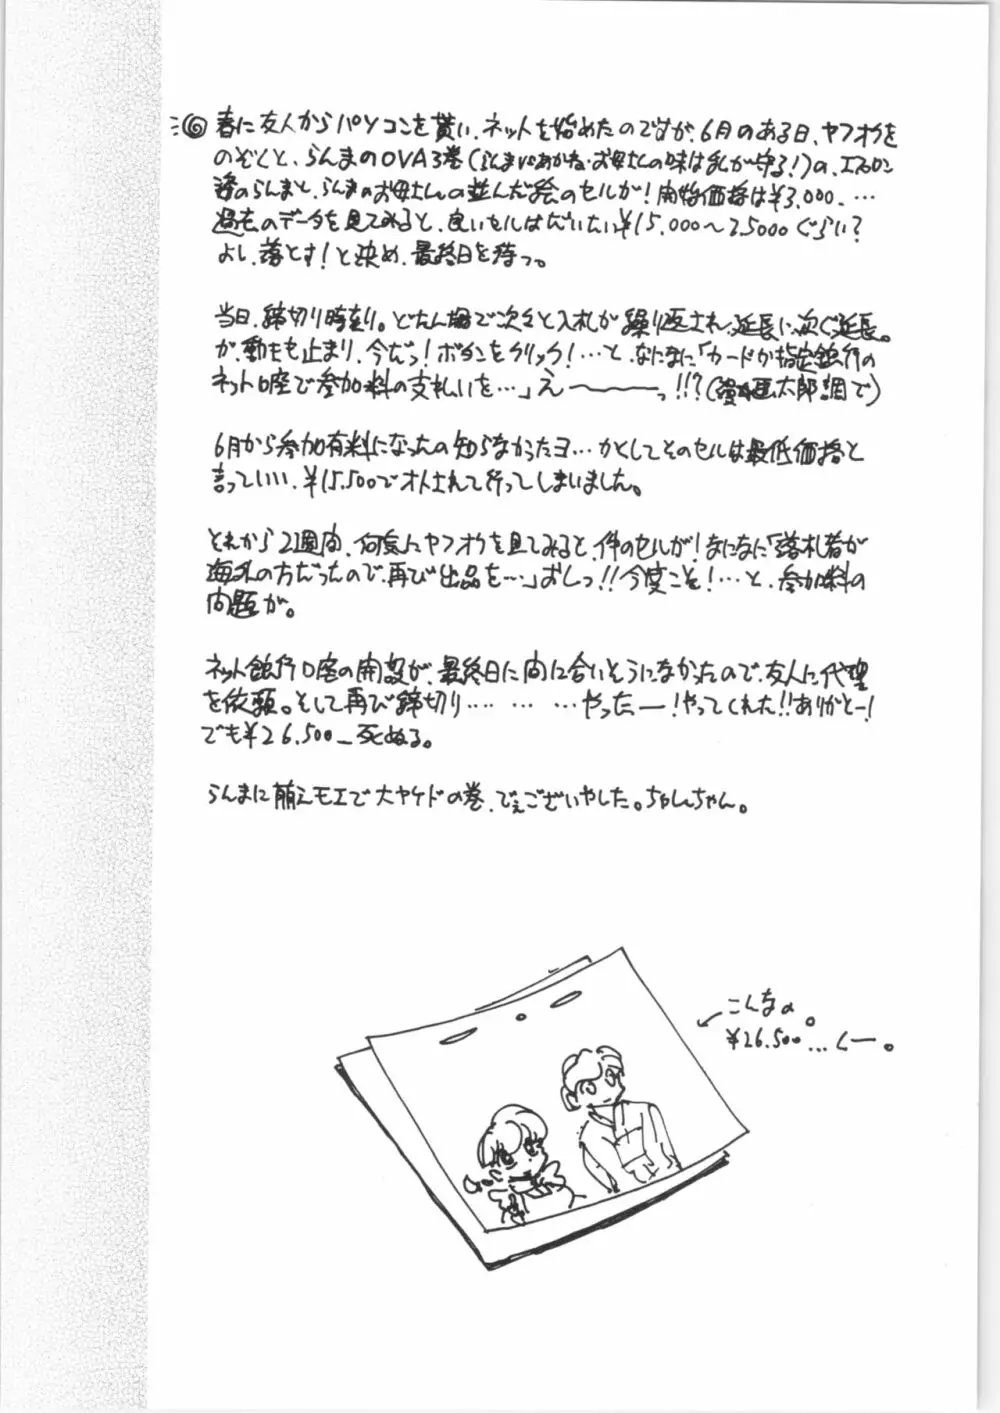 春に友人からパソコンを貰い、ネットを始めたのですが、6月のある日、ヤフオクを
のぞくと、らんまのOVA3巻(らんまVSあかね・お母さんの味は乱が守る!)の、エプロン
姿のらんまと、らんまのお母さんの並んだ絵のセルが!開始価格は¥3,000、…
過去のデータを見てみると、良いセルはだいたい¥15,000〜25000ぐらい?
よし、落とす!と決め、最終日を待つ。
当日、締切り時刻。どたん場で次々と入札が繰り返され、延長に次ぐ延長。
が、動きも止まり、今だっ!ボタンをクリック!…と、なになに「カードか指定銀行の
ネット口座で参加料の支払いを…」え〜〜〜っ!!?(漫☆画太郎調で)
6月から参加有料になったの知らなかったヨ…かとしてそのセルは最低価格と
言っていい、¥15,500でオトされて行ってしまいました。
それから2週間、何度にヤフオクを見てみると、件のセルが!なになに「落札者が
海外の方だったので、再び出品を…」おしっ!!今度こそ!…と、参加料の
問題が。
ネット銀行口座の開設が、最終日に間に合いそうになかったので、友人に代理
を依頼。そして再び締切り… … …やったー!やってくれた!!ありがとー!
でも¥26,500_死ぬる。
らんまに萌えモエで大ヤケドの巻、でぇございやした。ちゃんちゃん。
こんなの。
¥26,500…くー。